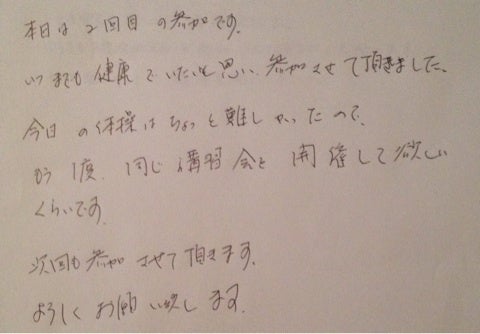 本日は2回目の参加です。
いつまでも健康でいたいと思い、参加させて頂きました。
今日の体操はちょっと難しかったので、
もう1度、同じ講習会を開催して欲しい
くらいです。
次回も参加させて頂きます。
よろしくお願い致します。